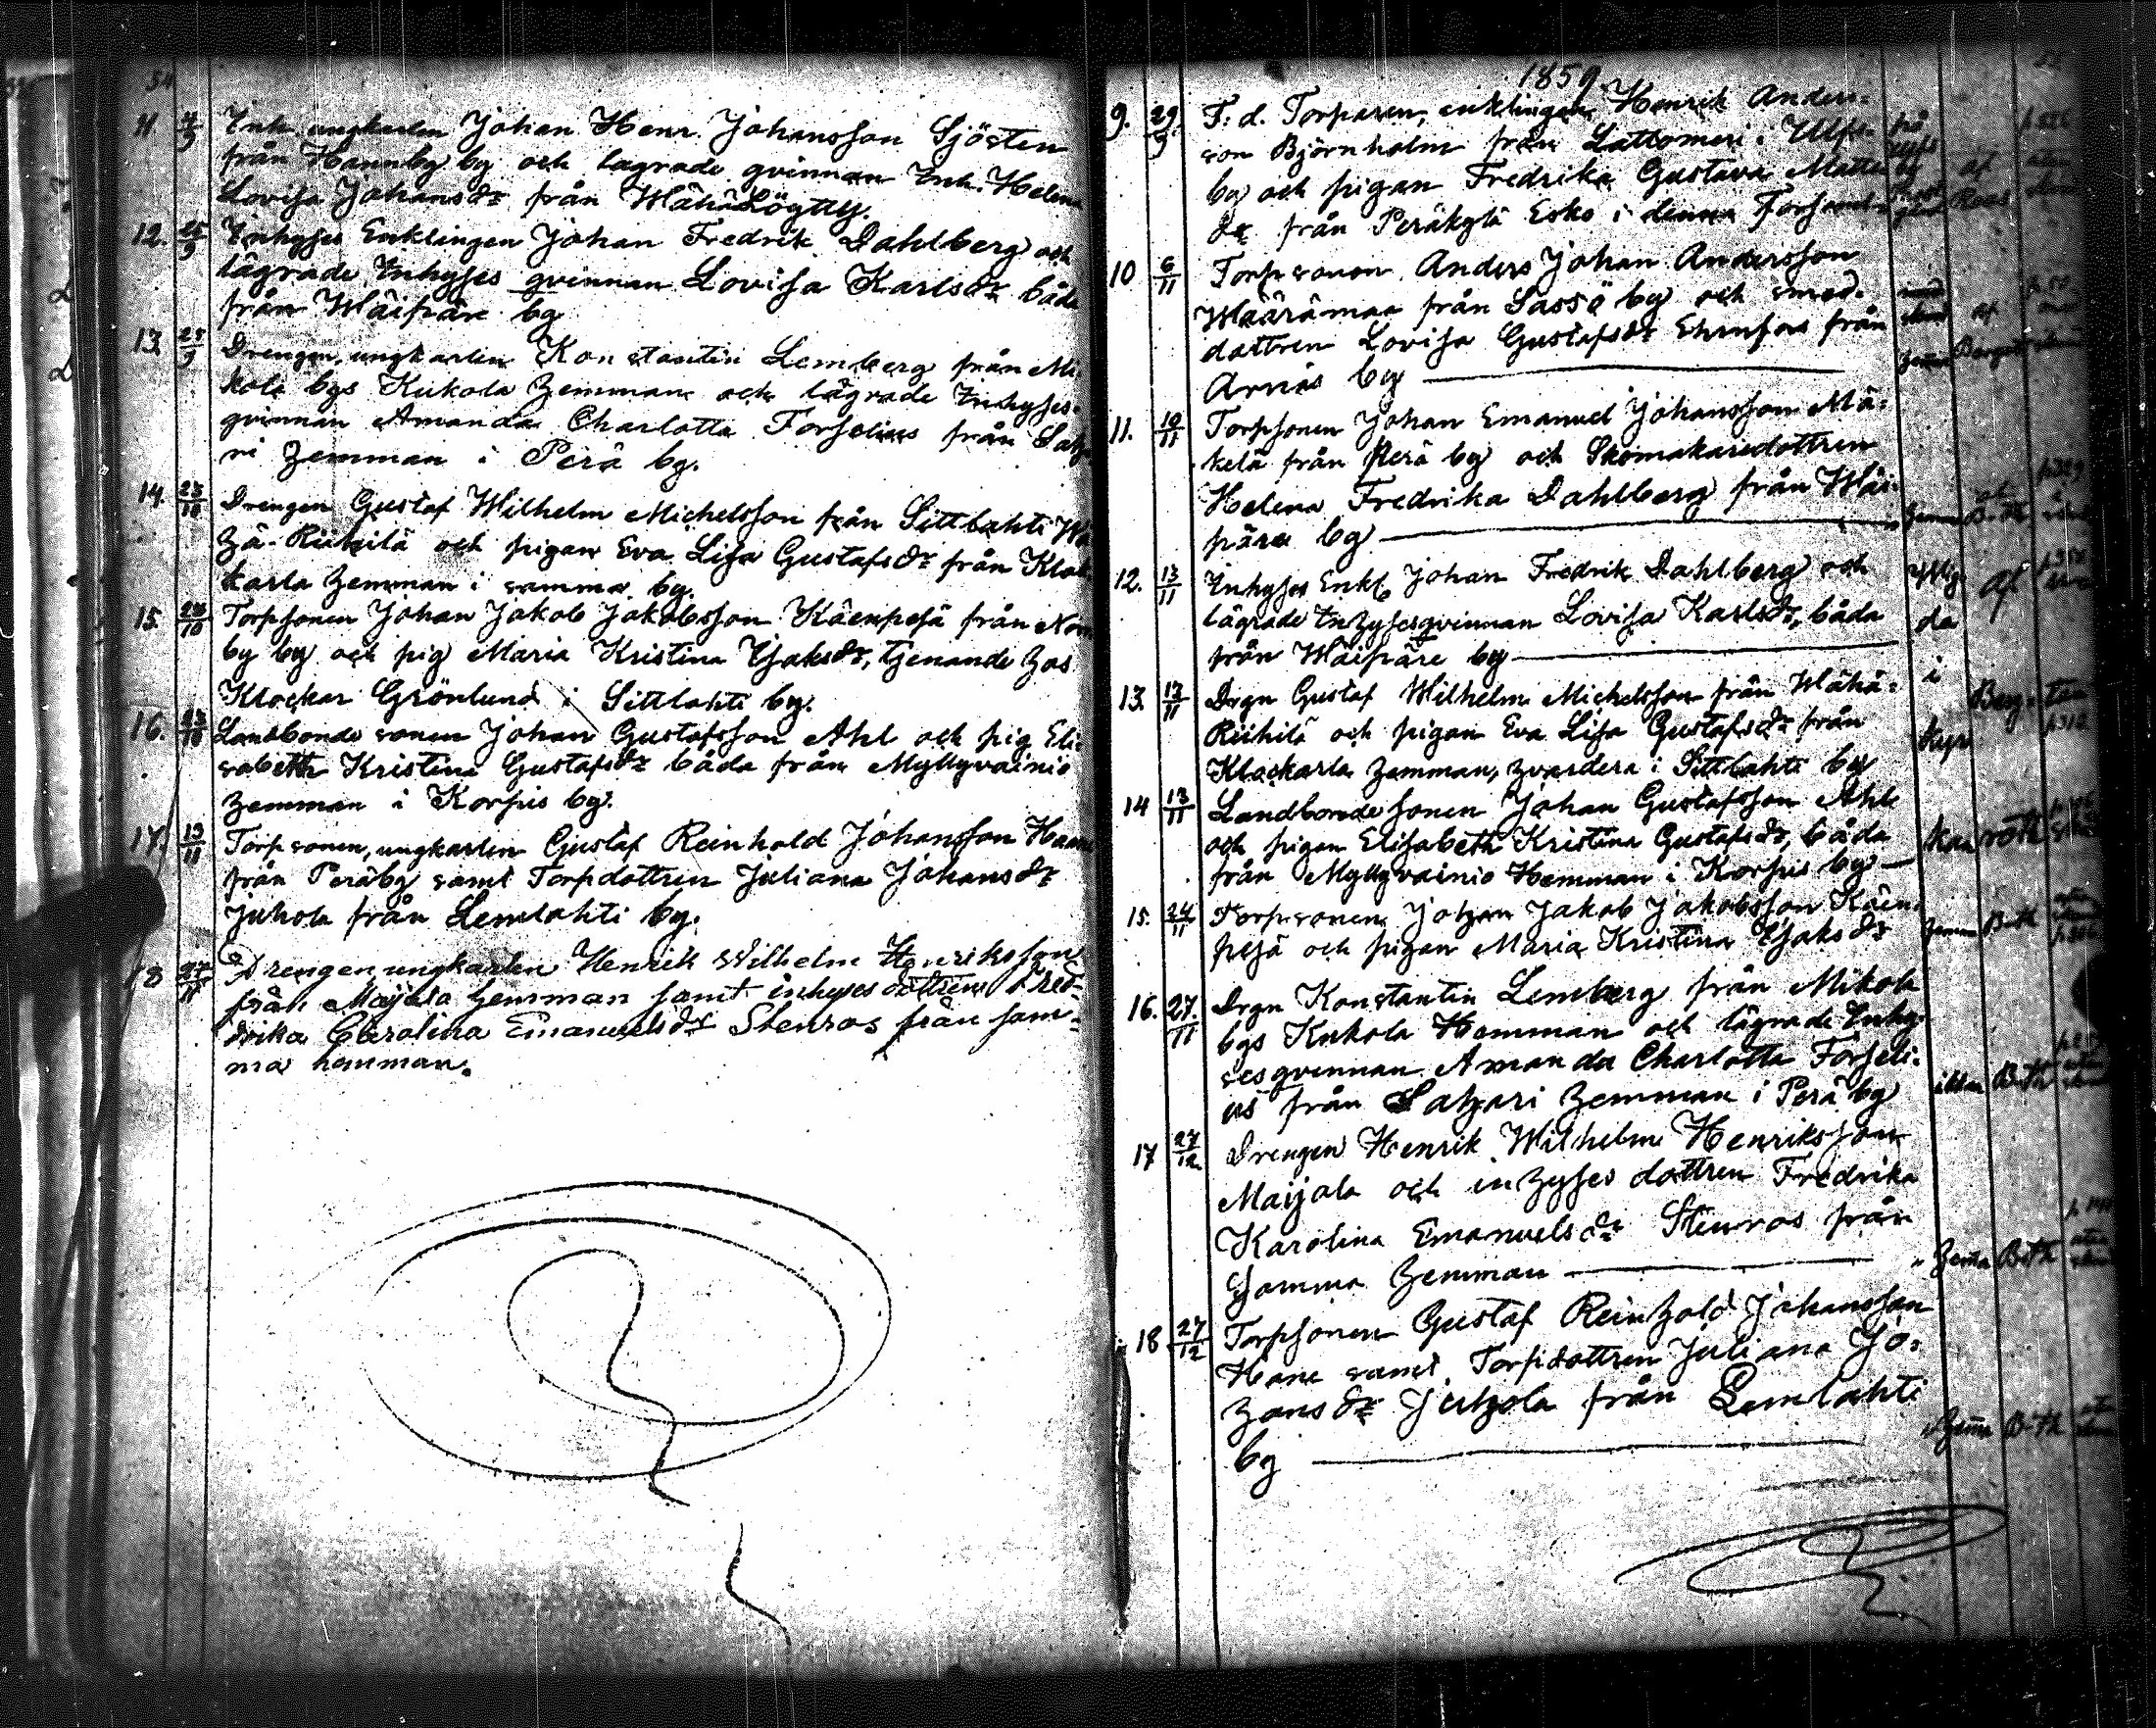 54
11. 4/9 Inh. ungkarlen Johan Henr. Johansson Sjösten
från Hannby by och lägrade qvinnan Inh. Helena
Lovisa Johansdr från
12. 25/9 Inhyses Enklingen Johan Fredrik Dahlberg och
lägrade Inhyses qvinnan Lovisa Karlsdr båda
från Wäipäre by
13. 25/9 Drengen, ungkarlen Konstantin Lemberg från Mi-
kola bys Kukola hemman och lägrade Inhyses-
qvinnan Amanda Charlotta Forselius från Sah-
ri hemman i Perä by.
14. 23/10 Drengen Gustaf Wilhelm Michelsson från Sittlahti Wä
hä-Riihilä och pigan Eva Lisa Gustafsdr från Klo
karla hemman i samma by.
15. Torpsonen Johan Jakob Jakobsson Käenpesä från Norr
by by och pig Maria Kristina Isaksdr, tjenande hos
Klockar Grönlund i Sittlahti by.
16. 23/10 Landbonde sonen Johan Gustafsson Ahl och pig Eli-
sabeth Kristina Gustafsdr båda från Myllyvainio
hemman i Korpis by.
17. 13/11 Torpsonen, ungkarlen Gustaf Reinhold Johansson
från Peräby samt Torpdottren Juliana Johansdr
Juhola från Lemlahti by.
18 27/11 Drengen ungkarlen Henrik Wilhelm Henriksson
från Maijala hemman samt inhyses dottren Fred-
drika Carolina Emanuelsdr Stenros från sam-
ma hemman.
1859
9. 29/9 F. d. Torparen, enklingen Henrik Anders-
son Björnholm från Lattomeri i Ulfs-
by och pigan Fredrika Gustava Matts
dr från Peräkylä Esko i denna Församl-
10 6/11 Torpsonen Anders Johan Andersson
Määrämaa från Sassö by och smed-
dottren Lovisa Gustafsdr från
Arnäs by
11. 10/11 Torpsonen Johan Emanuel Johansson Mä-
kelä från Perä by och Skomakaredottren
Helena Fredrika Dahlberg från Wäi-
päre by
12. 13/11 Inhyses Enkl. Johan Fredrik Dahlberg och
lägrade Inhysesqvinnan Lovisa Karlsdr, båda
från Wäipäre by
13. 13/11 Drgn Gustaf Wilhelm Michelsson från Wähä-
Riihilä och pigan Eva Lisa Gustafsdr från
Klockarla hemman, hvardera i Sittlahti by
14 13/11 Landbondesonen Johan Gustafsson Ahl
och pigan Elisabeth Kristina Gustafsdr, båda
från Myllyvainio Hemman i Korpis by
15. 24/11 Torpsonen Johan Jakob Jakobsson Käen-
pesä och pigan Maria Kristina Isaksdr
16. 27/11 Drgn Konstantin Lemberg från Mikola
bys Kukola Hemman och lägrade Inhy-
ses qvinnan Amanda Charlotta Forseli-
us från Sahari hemman i Perä by
17 27/12 Drengen Henrik Wilhelm Henriksson
Maijala och inhyses dottren Fredrika
Karolina Emanuelsdr Stenros från
samma hemman
18 27/12 Torpsonen Gustaf Reinhold Johansson
Hane samt Torpdottren Juliana Jo-
hansdr Juhola från Lemlahti
by